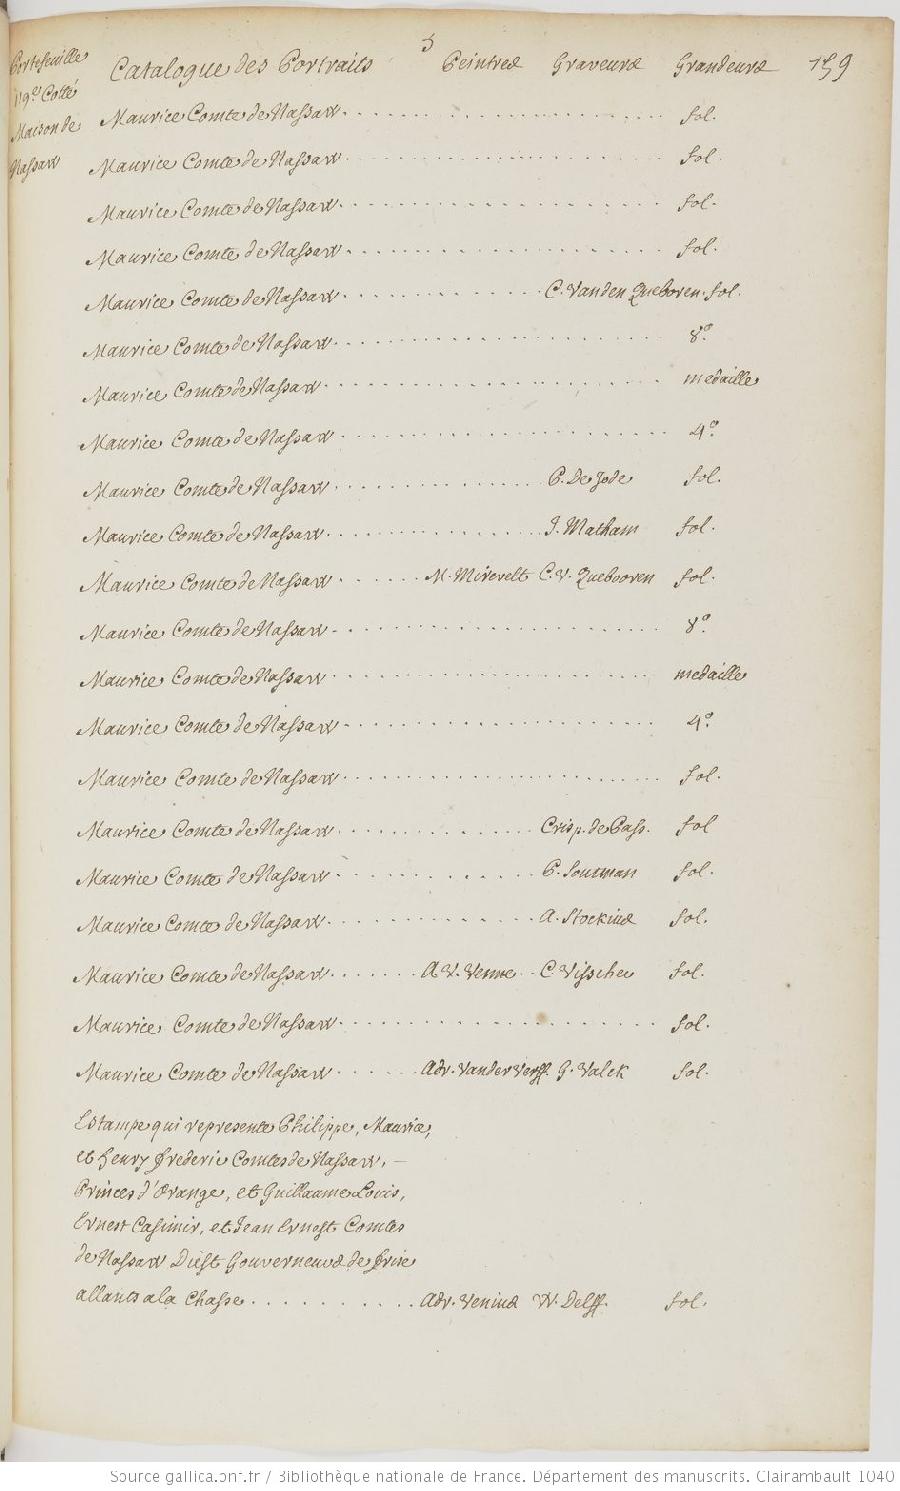 5
Portefeuille Catalogue des Portraits Peintres Graveurs Grandeurs 159
19e. Cotté
Maison de
Nassaw
Maurice Comte de Nassaw. fol.
Maurice Comte de Nassaw fol.
Maurice Comte de Nassaw. fol.
Maurice Comte de Nassaw. fol.
Maurice Comte de Nassaw. C. Vanden Queboren. fol.
Maurice Comte de Nassaw. 8o.
Maurice Comte de Nassaw. medaille
Maurice Comte de Nassaw. 4o.
Maurice Comte de Nassaw. P. De Jode fol.
Maurice Comte de Nassaw. J. Matham fol.
Maurice Comte de Nassaw. M. Mirevelt C. V. Quebooren fol.
Maurice Comte de Nassaw. 8o.
Maurice Comte de Nassaw. medaille
Maurice Comte de Nassaw. 4o.
Maurice Comte de Nassaw. fol.
Maurice Comte de Nassaw. Crisp. de Pass. fol
Maurice Comte de Nassaw. P. Soutman fol.
Maurice Comte de Nassaw. A. Stockius fol.
Maurice Comte de Nassaw. A. V. Venne C Visscher fol.
Maurice Comte de Nassaw. fol.
Maurice Comte de Nassaw. Adr. Vander Werff. G. Valck fol.
Estampe qui represente Philippe, Maurice,
et henry frederic Comtes de Nassaw, —
Princes d'Orange, et Guillaume Louis,
Ernest Casimir, et Jean Ernest Comtes
de Nassaw Diest Gouverneurs de frise
allants a la Chasse. Adr. Venius W. Delff. fol.
Source gallica.bnf.fr / Bibliothèque nationale de France. Département des manuscrits. Clairambault 1040